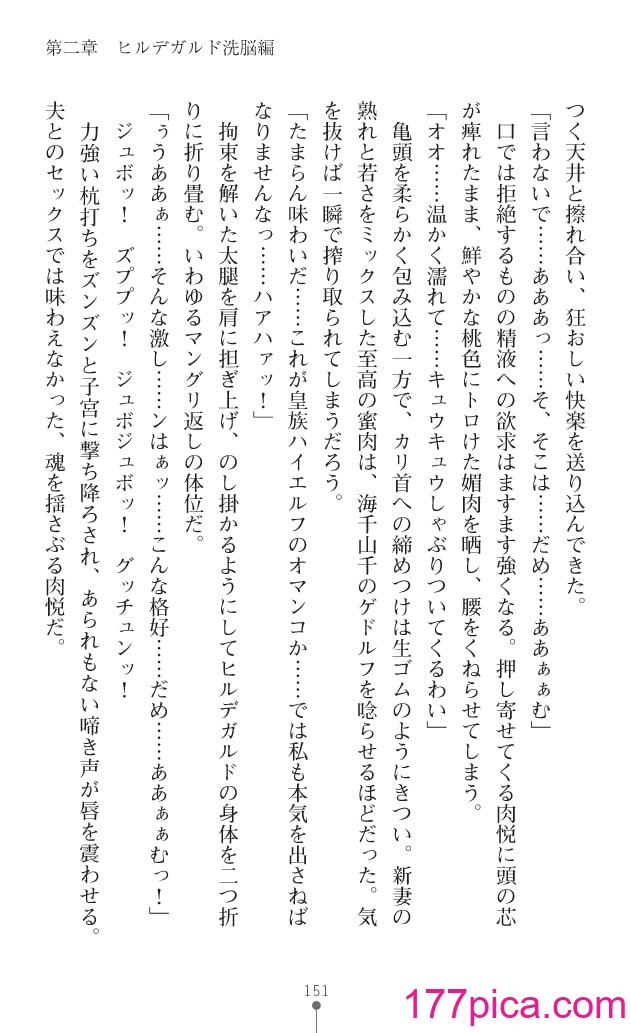 第二章　ヒルデガルド洗脳編
つく天井と擦れ合い、狂おしい快楽を送り込んできた。
「言わないで……あああっ……そ、そこは……だめ……ああぁぁむ」
口では拒絶するものの精液への欲求はますます強くなる。押し寄せてくる肉悦に頭の芯
が痺れたまま、鮮やかな桃色にトロけた媚肉を晒し、腰をくねらせてしまう。
「オオ……温かく濡れて……キュウキュウしゃぶりついてくるわい」
亀頭を柔らかく包み込む一方で、カリ首への締めつけは生ゴムのようにきつい。新妻の
熟れと若さをミックスした至高の蜜肉は、海千山千のゲドルフを唸らせるほどだった。気
を抜けば一瞬で搾り取られてしまうだろう。
「たまらん味わいだ……これが皇族ハイエルフのオマンコか……では私も本気を出さねば
なりませんなっ……ハアハァッ！」
拘束を解いた太腿を肩に担ぎ上げ、のし掛かるようにしてヒルデガルドの身体を二つ折
りに折り畳む。いわゆるマングリ返しの体位だ。
「ぅうああぁ……そんな激し……ンはぁッ……こんな格好……だめ……ああぁぁむっ！」
ジュボッ！　ズププッ！　ジュボジュボッ！　グッチュンッ！
力強い杭打ちをズンズンと子宮に撃ち降ろされ、あられもない啼き声が唇を震わせる。
夫とのセックスでは味わえなかった、魂を揺さぶる肉悦だ。
151
177pica.com